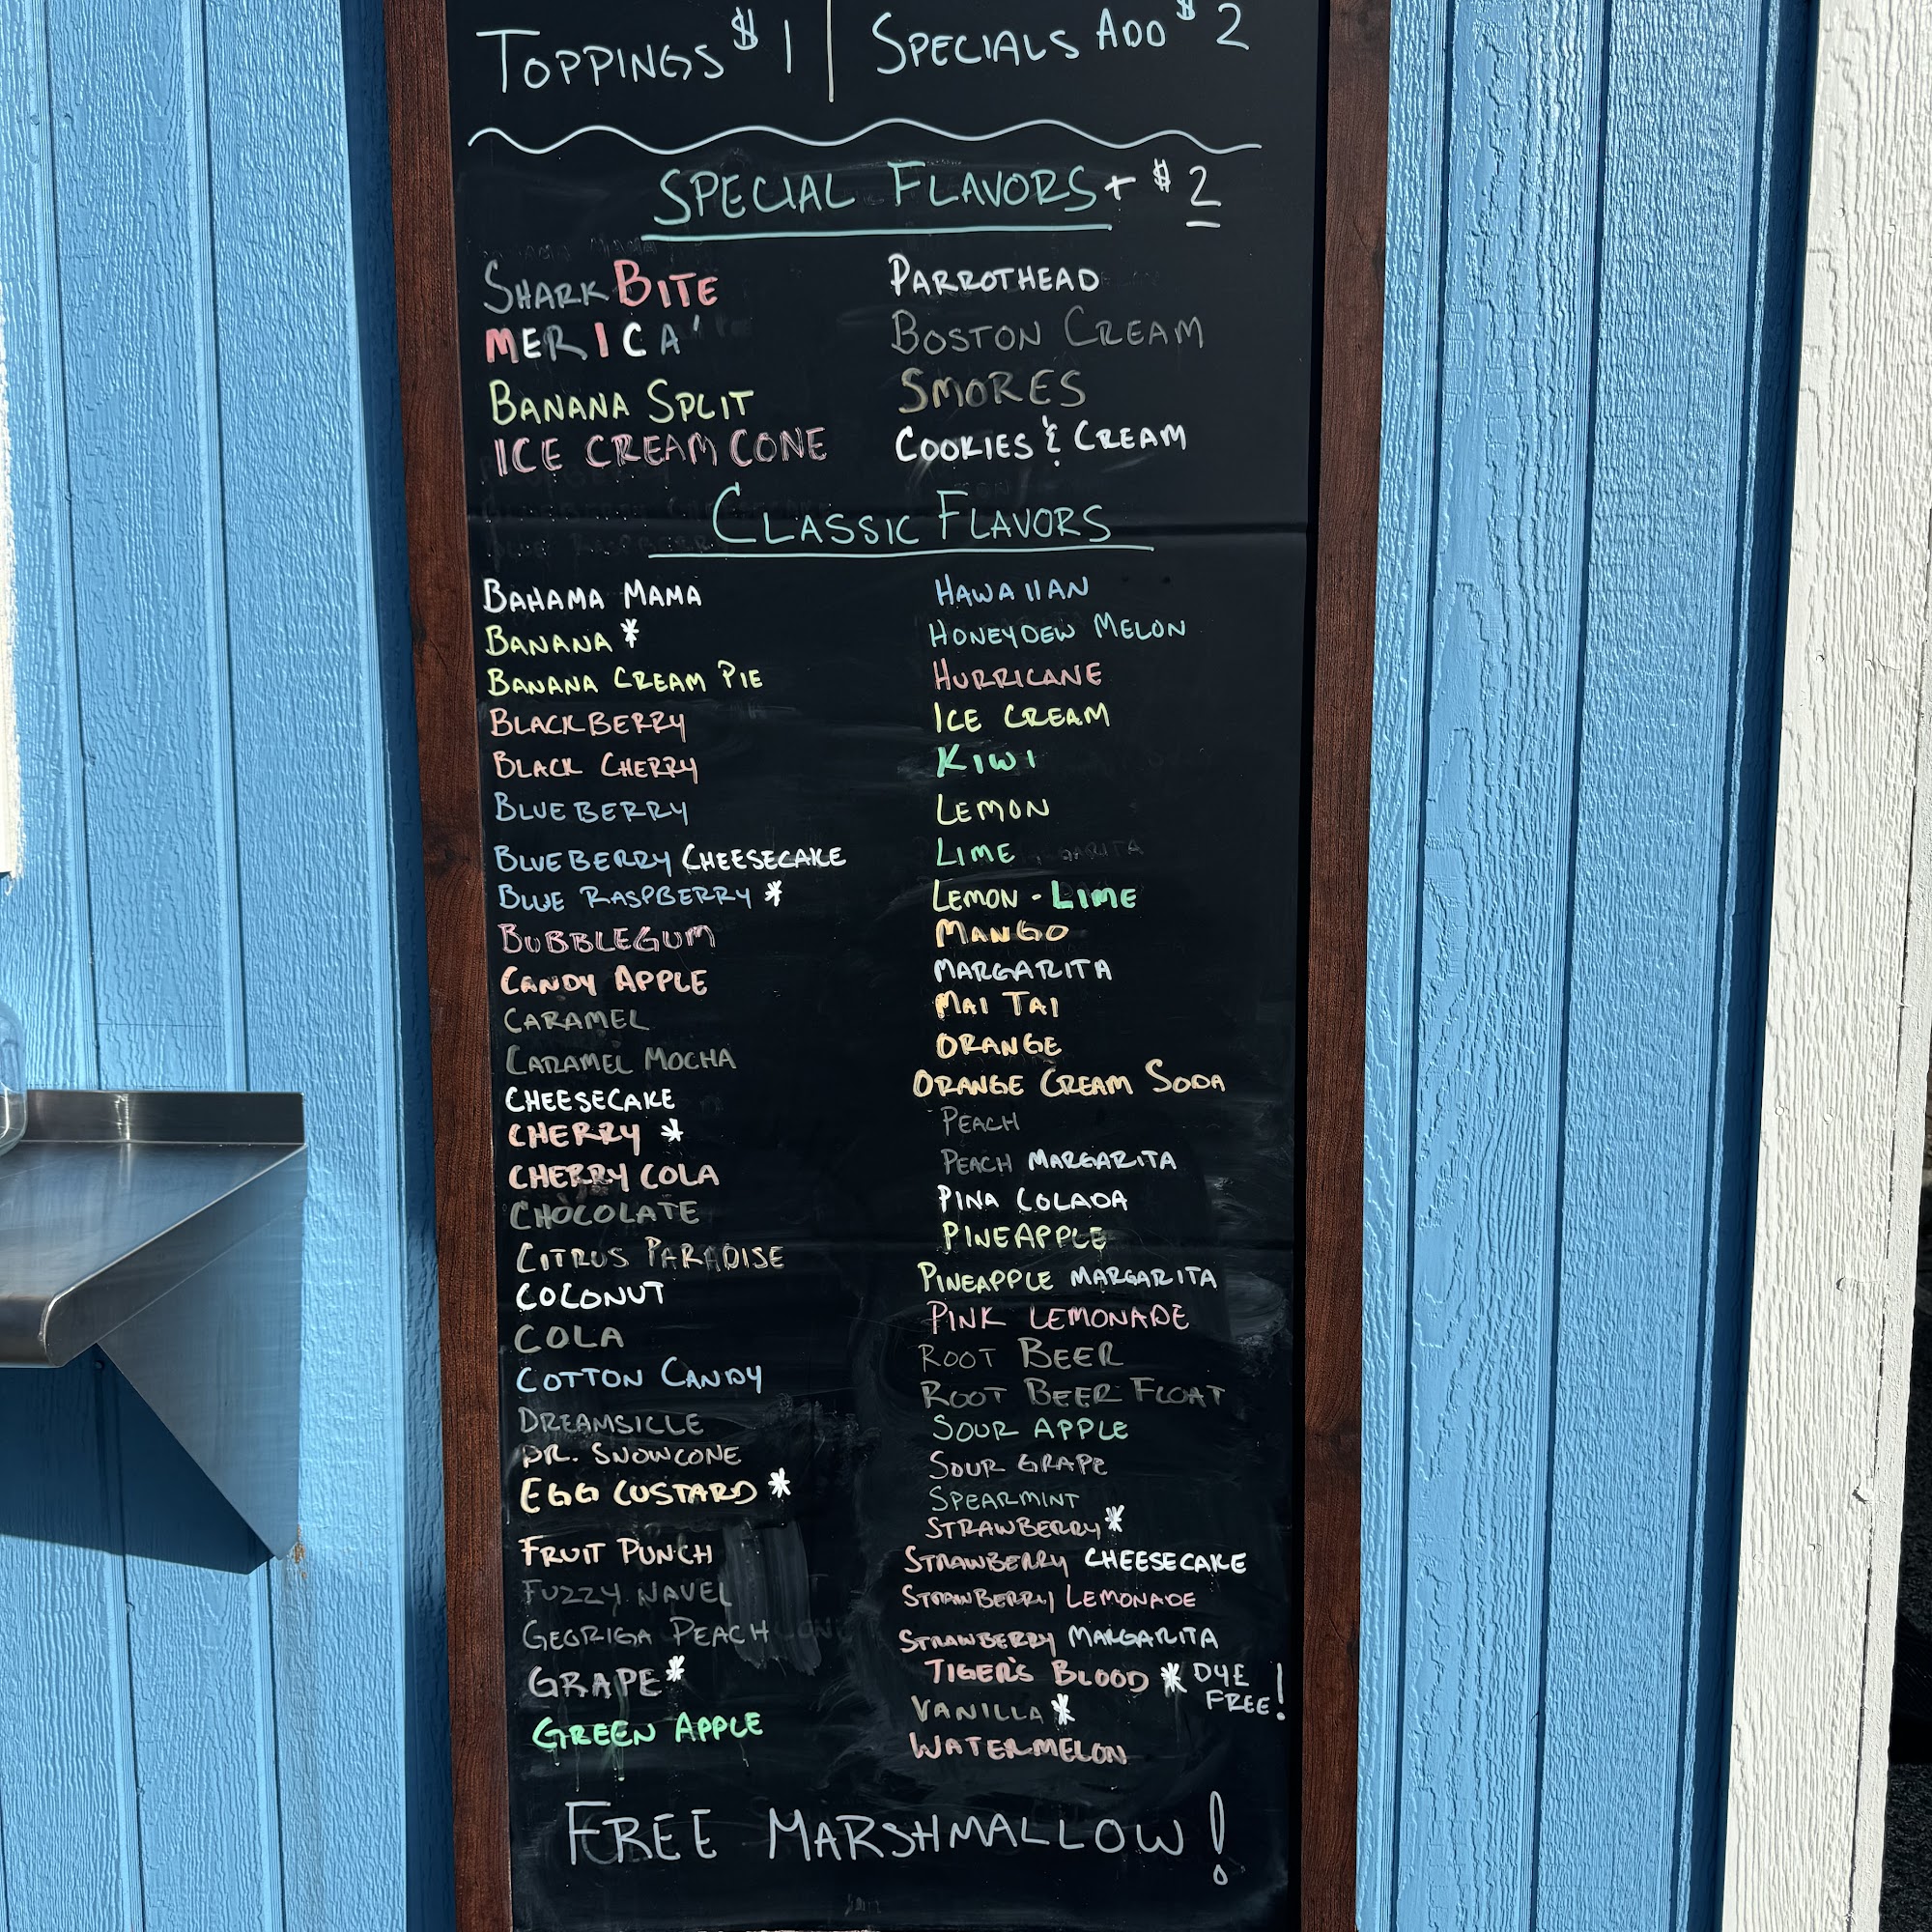 TOPPINGS $1 | SPECIALS ADD $2
SPECIAL FLAVORS + $2
SHARK BITE
MERICA'
BANANA SPLIT
ICE CREAM CONE
PARROTHEAD
BOSTON CREAM
SMORES
COOKIES & CREAM
CLASSIC FLAVORS
BAHAMA MAMA
BANANA *
BANANA CREAM PIE
BLACKBERRY
BLACK CHERRY
BLUEBERRY
BLUEBERRY CHEESECAKE
BLUE RASPBERRY *
BUBBLEGUM
CANDY APPLE
CARAMEL
CARAMEL MOCHA
CHEESECAKE
CHERRY *
CHERRY COLA
CHOCOLATE
CITRUS PARADISE
COCONUT
COLA
COTTON CANDY
DREAMSICLE
DR. SNOWCONE
EGG CUSTARD *
FRUIT PUNCH
FUZZY NAVEL
GEORIGA PEACH
GRAPE *
GREEN APPLE
HAWAIIAN
HONEYDEW MELON
HURRICANE
ICE CREAM
KIWI
LEMON
LIME
LEMON - LIME
MANGO
MARGARITA
MAI TAI
ORANGE
ORANGE CREAM SODA
PEACH
PEACH MARGARITA
PINA COLADA
PINEAPPLE
PINEAPPLE MARGARITA
PINK LEMONADE
ROOT BEER
ROOT BEER FLOAT
SOUR APPLE
SOUR GRAPE
SPEARMINT
STRAWBERRY *
STRAWBERRY CHEESECAKE
STRAWBERRY LEMONADE
STRAWBERRY MARGARITA
TIGER'S BLOOD
VANILLA *
WATERMELON
* DYE
FREE!
FREE MARSHMALLOW!